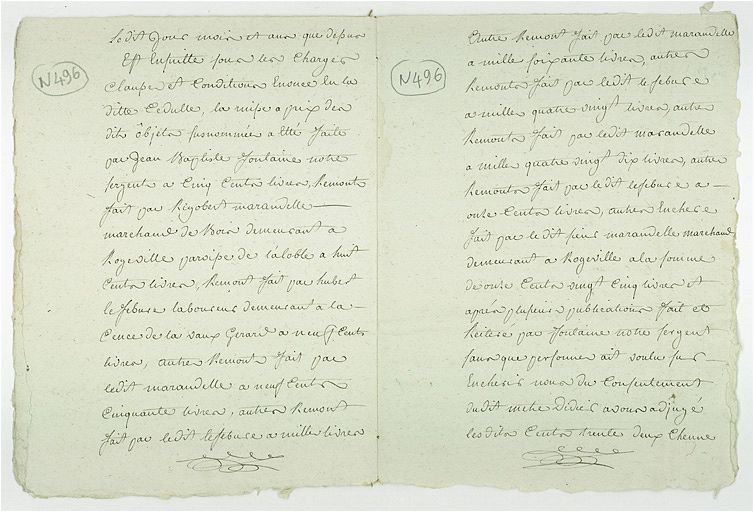 N496
Ledit Jour mois et ans que depuis
Est Ensuitte sous les Charges
Clauses et Conditions Enoncé En la
ditte Cedulle, la mise a prix des
dits objets susnommés a Eté faite
par Jean Baptiste fontaine notre
sergent a Cinq Cents livres, Remont
fait par Rigobert marandelle
marchand de Bois demeurant a
Rogeville paroisse de a huit
Cents livres, Remont fait par hubert
le febure laboureur demeurant a la
Cence de la vaux Gerard a neuf Cents
livres, autre Remont fait par
ledit marandelle a neuf Cents
Cinquante livres, autres Remont
fait par ledit lefebure a mille livres
N496
Autre Remont fait par ledit marandelle
a mille soixante livres, autres
Remonts fait par ledit lefebure
a mille quatre vingt livres, autre
Remonts fait par ledit marandelle
a mille quatre vingt dix livres, autre
Remonts fait par ledit lefebure a
onze Cents livres, autres Enchere
fait par ledit sieur marandelle marchand
demeurant a Rogeville a la somme
de onze Cents vingt Cinq livres et
après plusieurs publications fait et
Reiteré par fontaine notre sergent
sans que personne ait voulu sur
Encherir nous du Consentement
dudit metre Didier avons adjugé
lesdits Cents trente deux Chenne